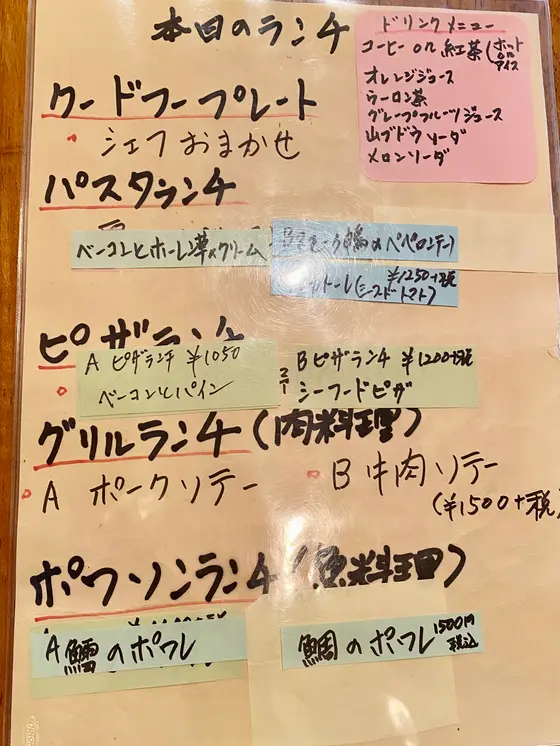 本日のランチ
ドリンクメニュー
コーヒー or 紅茶 (ホット or アイス
オレンジジュース
ウーロン茶
グレープフルーツジュース
山ブドウソーダ
メロンソーダ
クードフープレート
シェフおまかせ
パスタランチ
ベーコンとホーレン草のクリーム
のペペロンチーノ
¥1250+税
トーレ(シーフードトマト)
ピザランチ
A ピザランチ ¥1050
ベーコンとパイン
B ピザランチ ¥1200+税
シーフードピザ
グリルランチ (肉料理)
A ポークソテー
B 牛肉ソテー
(¥1500+税)
ポワソンランチ (魚料理)
A 鱈のポワレ
鯛のポワレ 1500円 税込